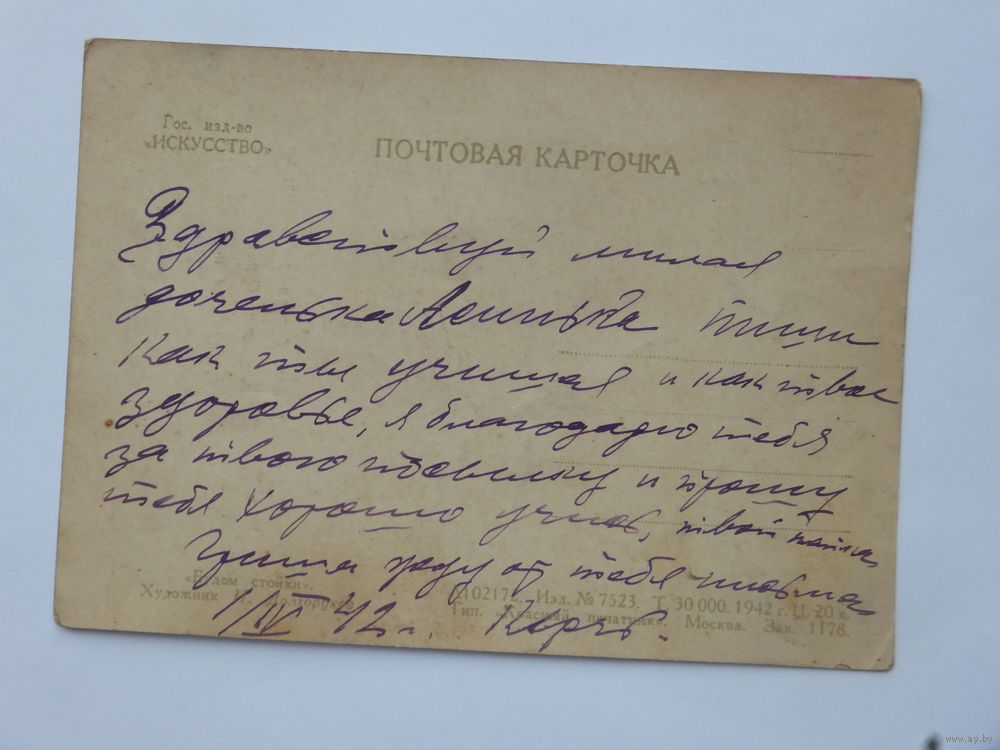 Гос. изд-во
«ИСКУССТВО»
ПОЧТОВАЯ КАРТОЧКА
Здравствуй милая
доченька Асинька пиши
как ты учишся и как твое
здоровье, я благодарю тебя
за твою посылку и прошу
тебя хорошо учись, твой папка
Гриша жду от тебя письма
«Будем стойки».
Художник Н. Долгоруков
Л10217. Изд. № 7523. Т. 30 000. 1942 г. Ц. 20 к.
Тип. «Красный печатник». Москва. Зак. 1178.
1/IV 42 г.
www.ay.by